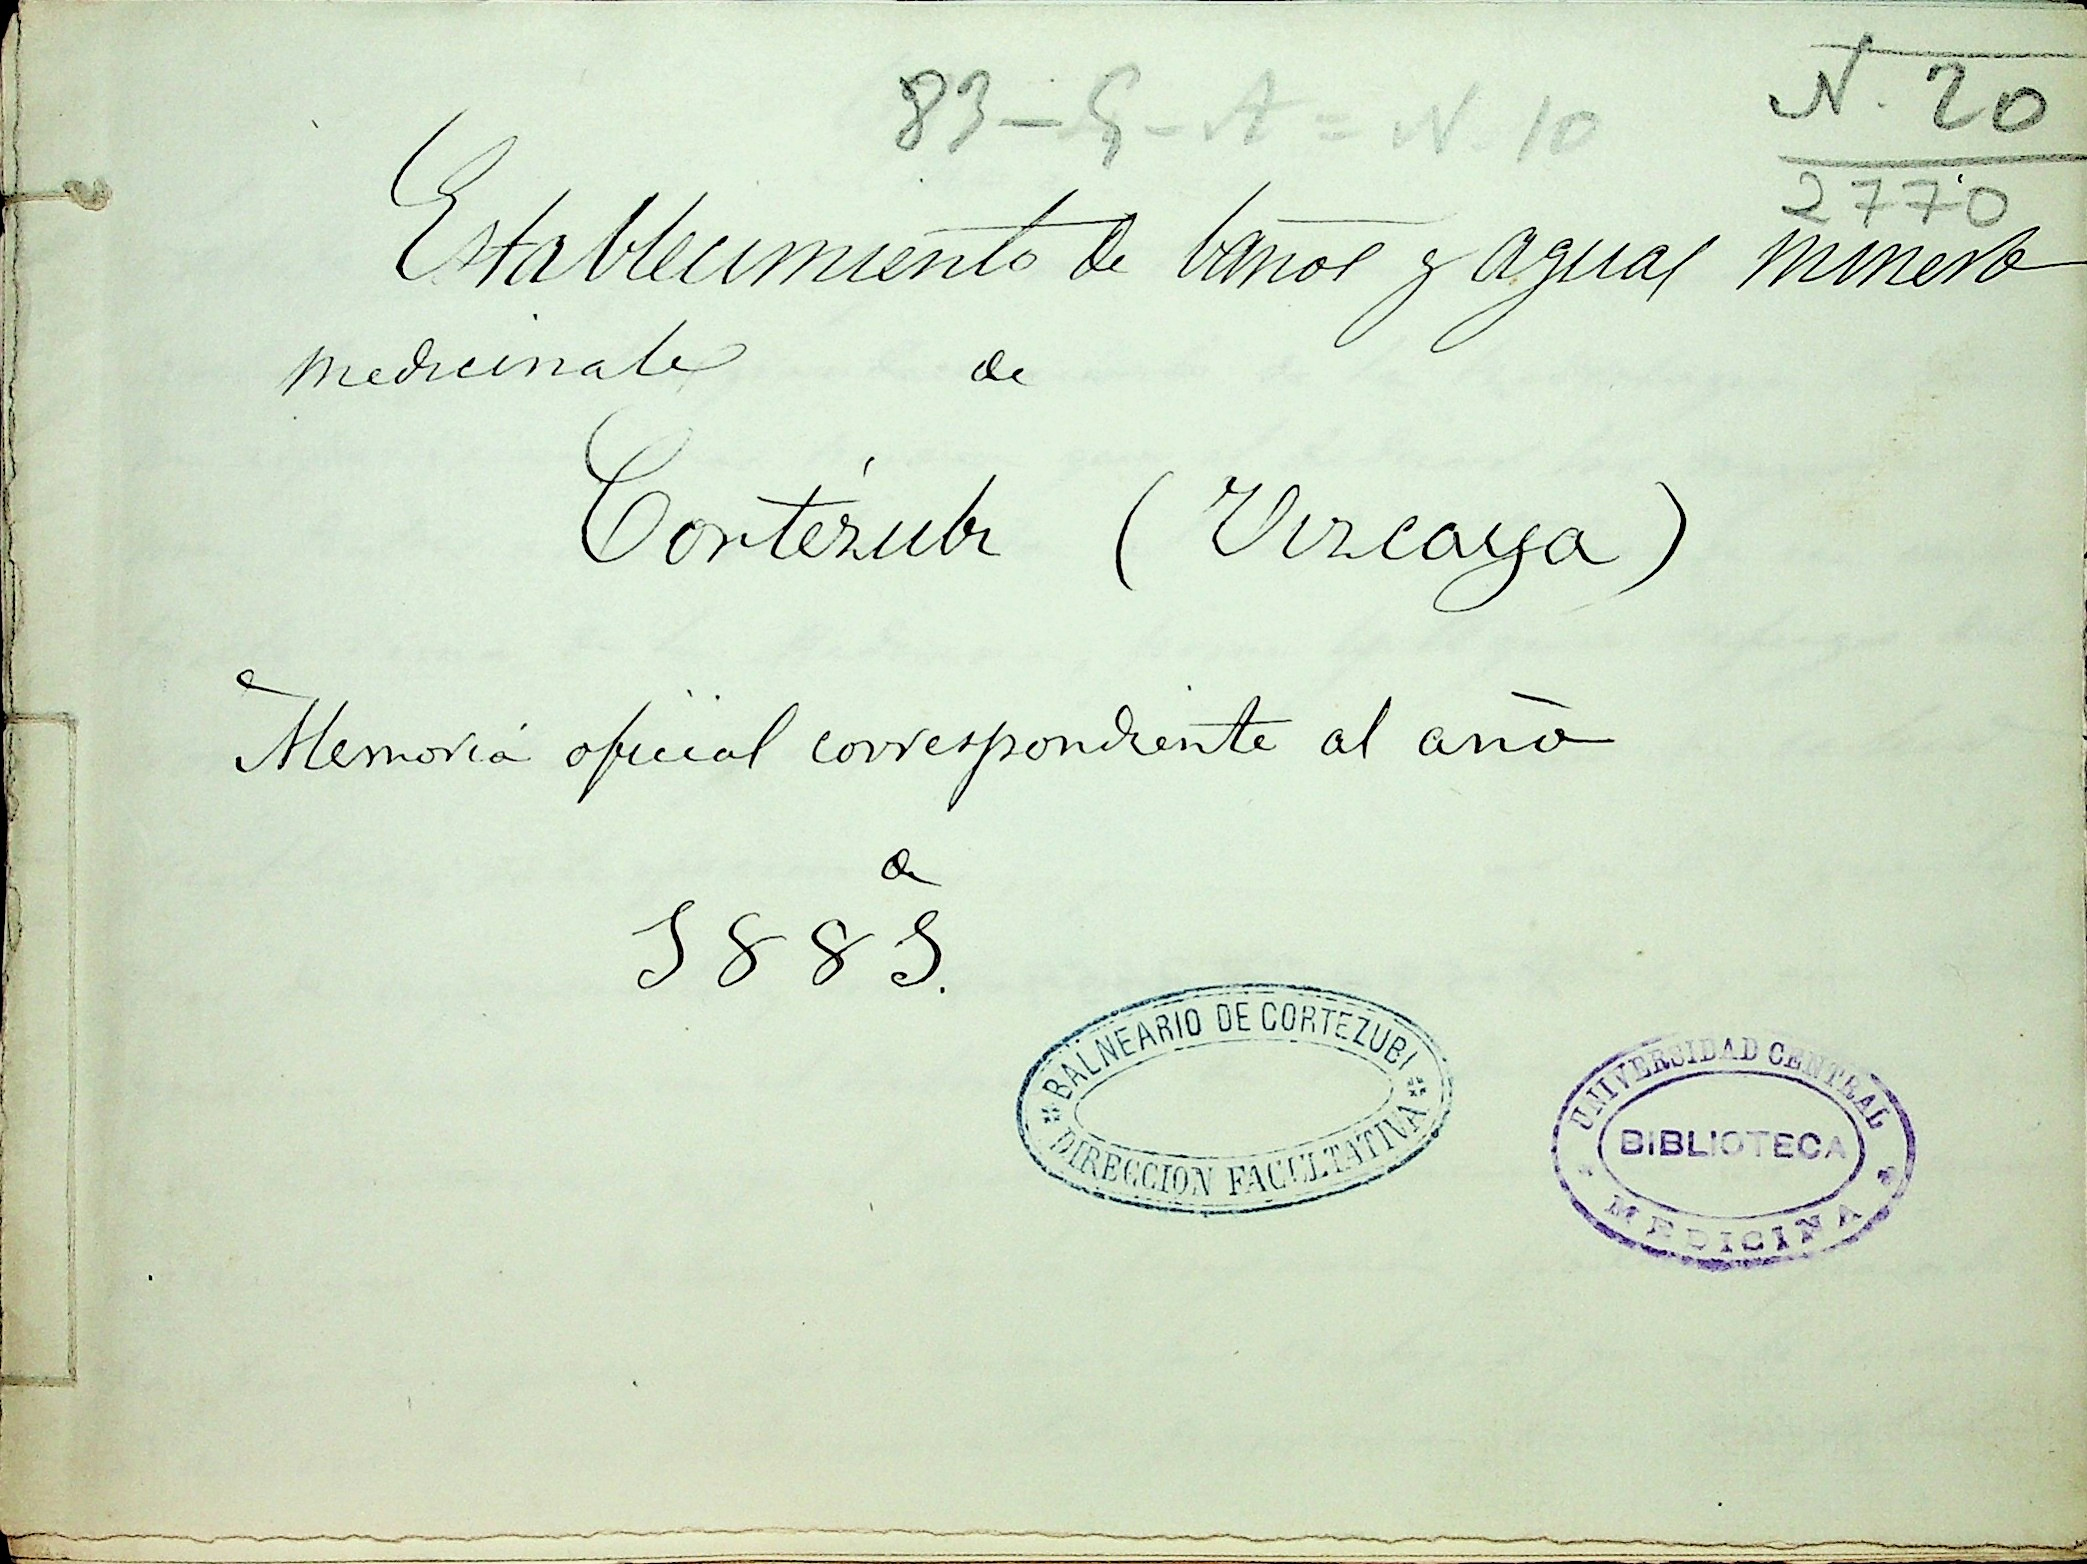 83-5-A = N. 10
N. 20
2770
Establecimiento de baños y aguas minero
medicinales de
Cortézubi (Vizcaya)
Memoria oficial correspondiente al año
de
1881.
BALNEARIO DE CORTEZUBI
DIRECCION FACULTATIVA
UNIVERSIDAD CENTRAL
BIBLIOTECA
MEDICINA